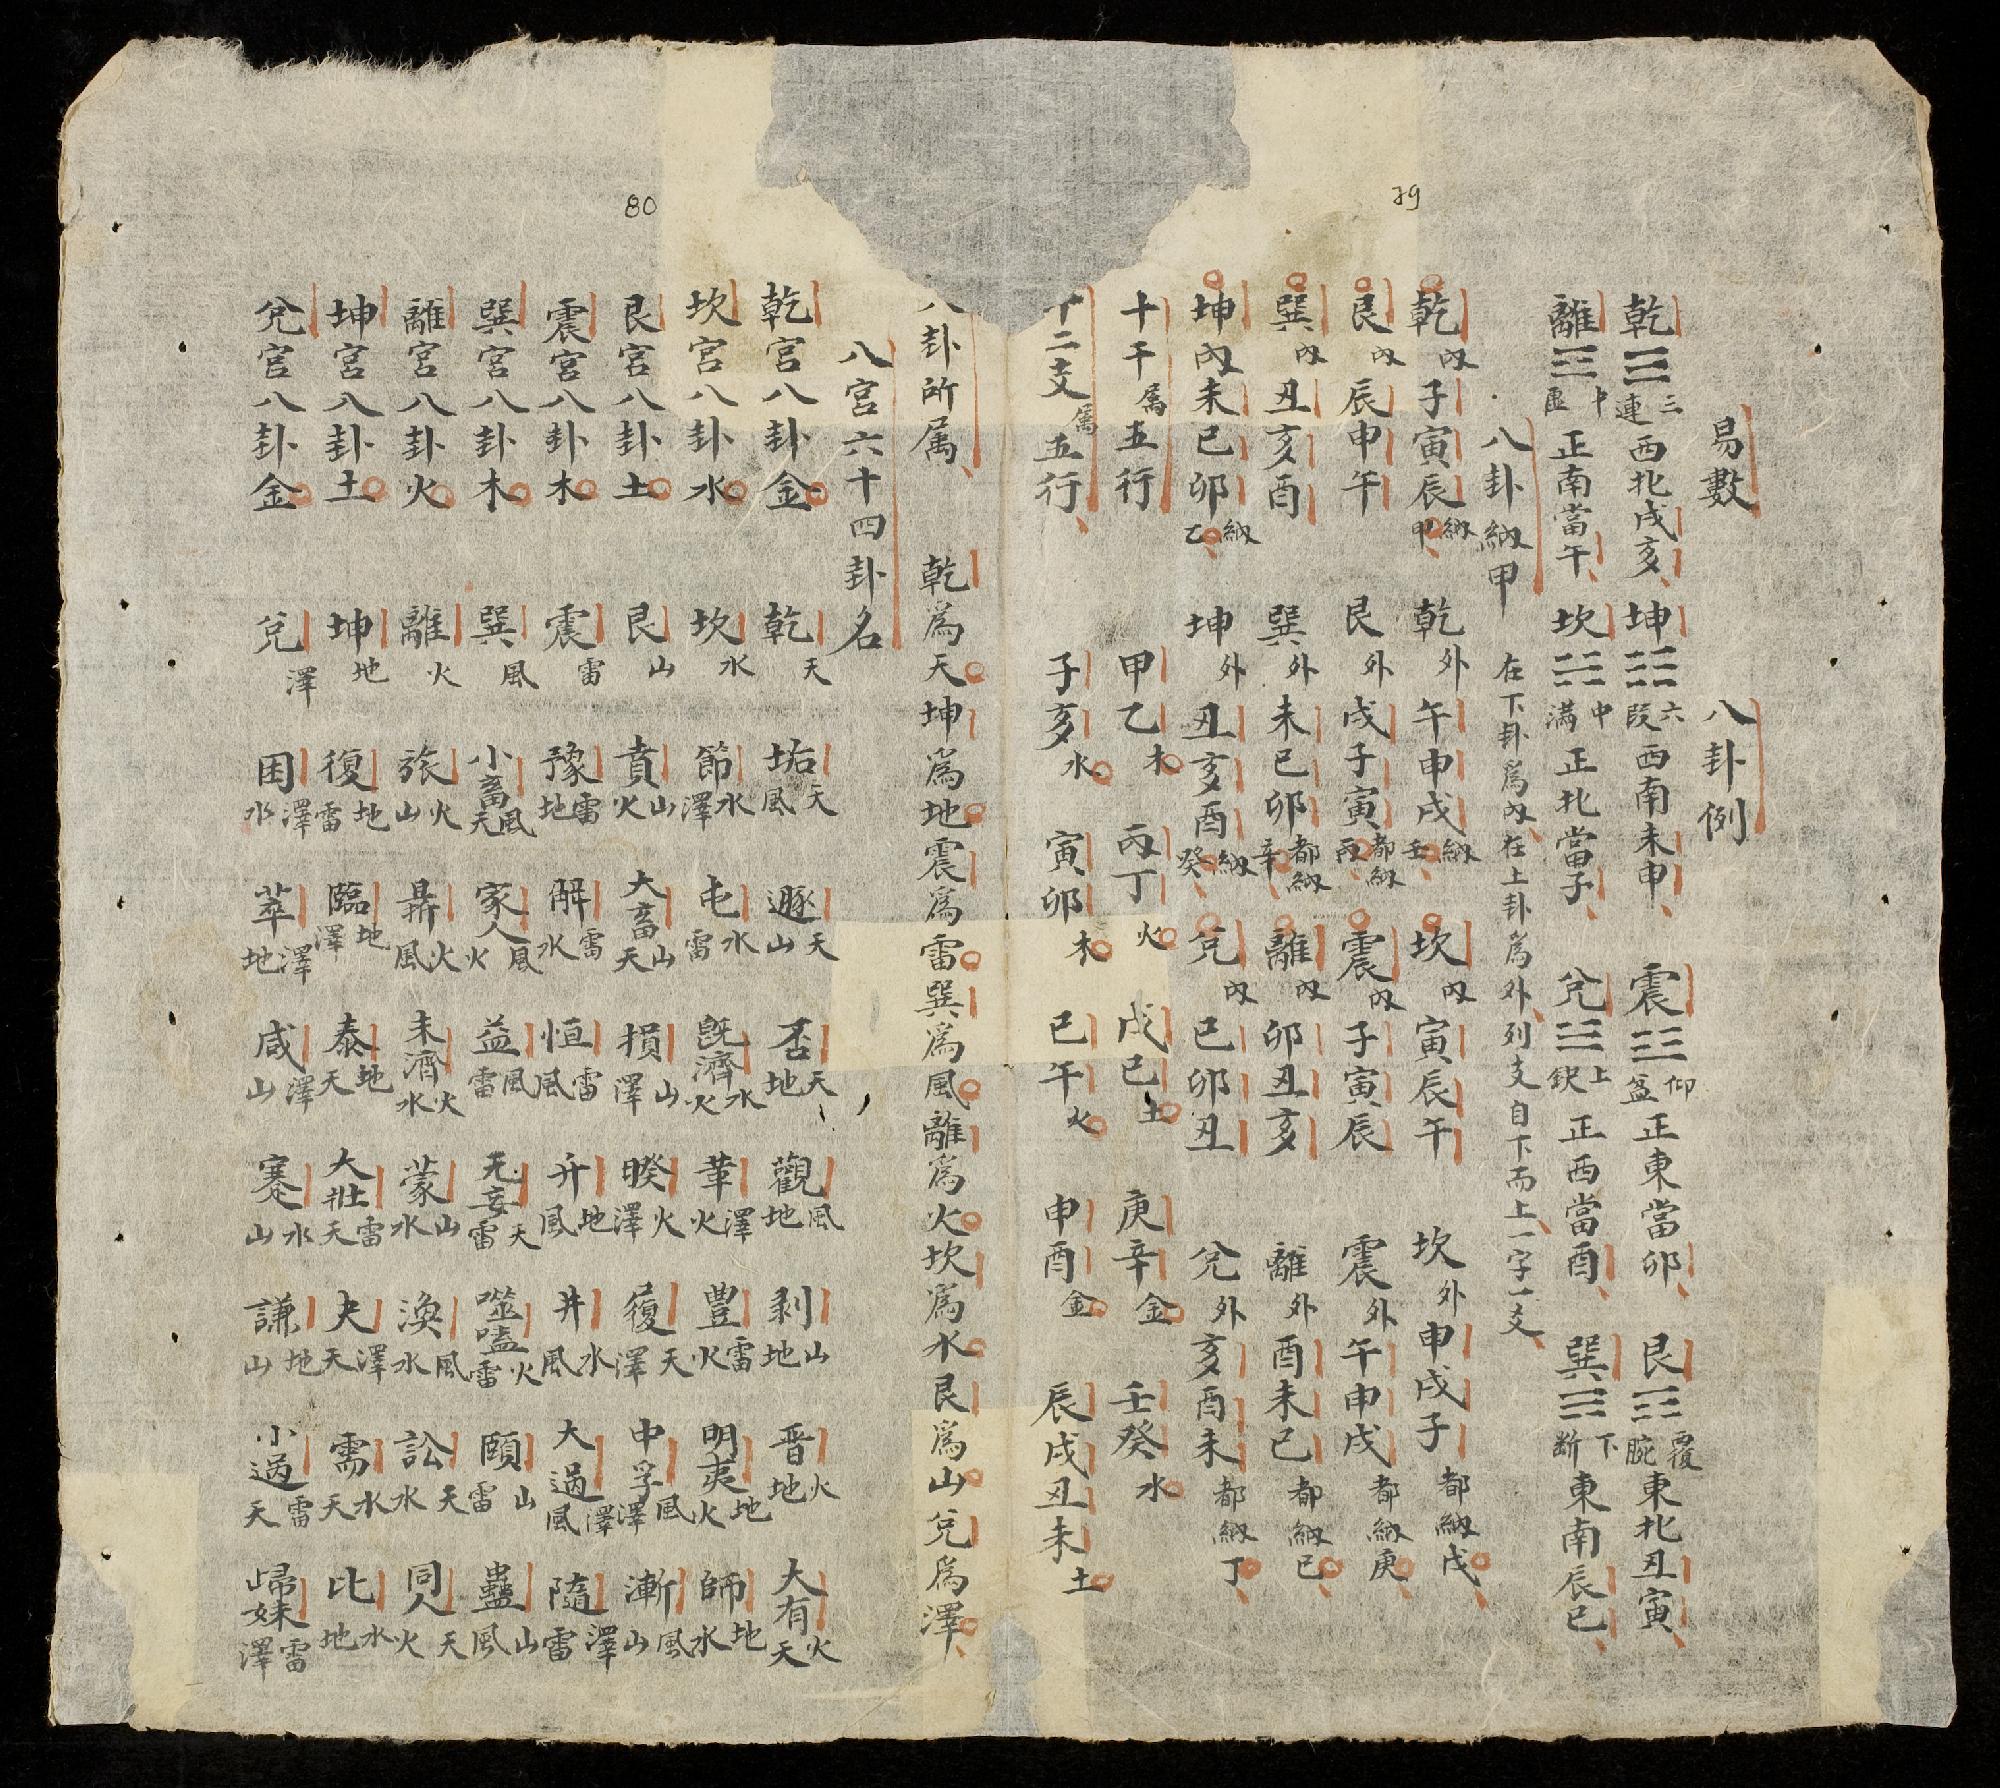 79
易數 八卦例
乾☰三連西北戌亥、坤☷六段西南未申、震☳仰盆正東當卯、艮☶覆腕東北丑寅、
離☲中虛正南當午、坎☵中満正北當子、兌☱上鈌正西當酉、巽☴下断東南辰巳、
八卦納甲 在下卦爲内、在上卦爲外、列支自下而上、一字一爻、
乾内子寅辰納甲、 乾外午申戌納壬、 坎内寅辰午 坎外申戌子都納戊、
艮内辰申午 艮外戌子寅都納丙、 震内子寅辰 震外午申戌都納庚、
巽内丑亥酉 巽外未巳卯都納辛、 離内卯丑亥 離外酉未巳都納己、
坤内未巳卯納乙、 坤外丑亥酉納癸、 兌内巳卯丑 兌外亥酉未都納丁、
十干属五行 甲乙木 丙丁火 戊己土 庚辛金 壬癸水
十二支属五行、 子亥水 寅卯木 巳午火 申酉金 辰戌丑未土
80
八卦所属、 乾爲天坤爲地震爲雷巽爲風離爲火坎爲水艮爲山兌爲澤、
八宮六十四卦名
乾宮八卦金 乾天 垢天風 遯天山 否天地 觀風地 剥山地 晋火地 大有火天
坎宮八卦水 坎水 節水澤 屯水雷 既濟水火 革澤火 豊雷火 明夷地火 師地水
艮宮八卦土 艮山 賁山火 大畜山天 損山澤 睽火澤 履天澤 中孚風澤 漸風山
震宮八卦木 震雷 豫雷地 解雷水 恒雷風 升地風 井水風 大過澤風 隨澤雷
巽宮八卦木 巽風 小畜風天 家人風火 益風雷 无妄天雷 噬嗑火雷 頤山雷 蠱山風
離宮八卦火 離火 旅火山 鼎火風 未濟火水 蒙山水 渙風水 訟天水 同人天火
坤宮八卦土 坤地 復地雷 臨地澤 泰地天 大壯雷天 夬澤天 需水天 比水地
兌宮八卦金 兌澤 困澤水 萃澤地 咸澤山 蹇水山 謙地山 小過雷天 歸妹雷澤